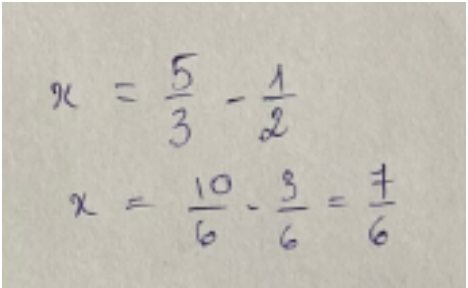 x = 5/3 - 1/2
x = 10/6 - 3/6 = 7/6